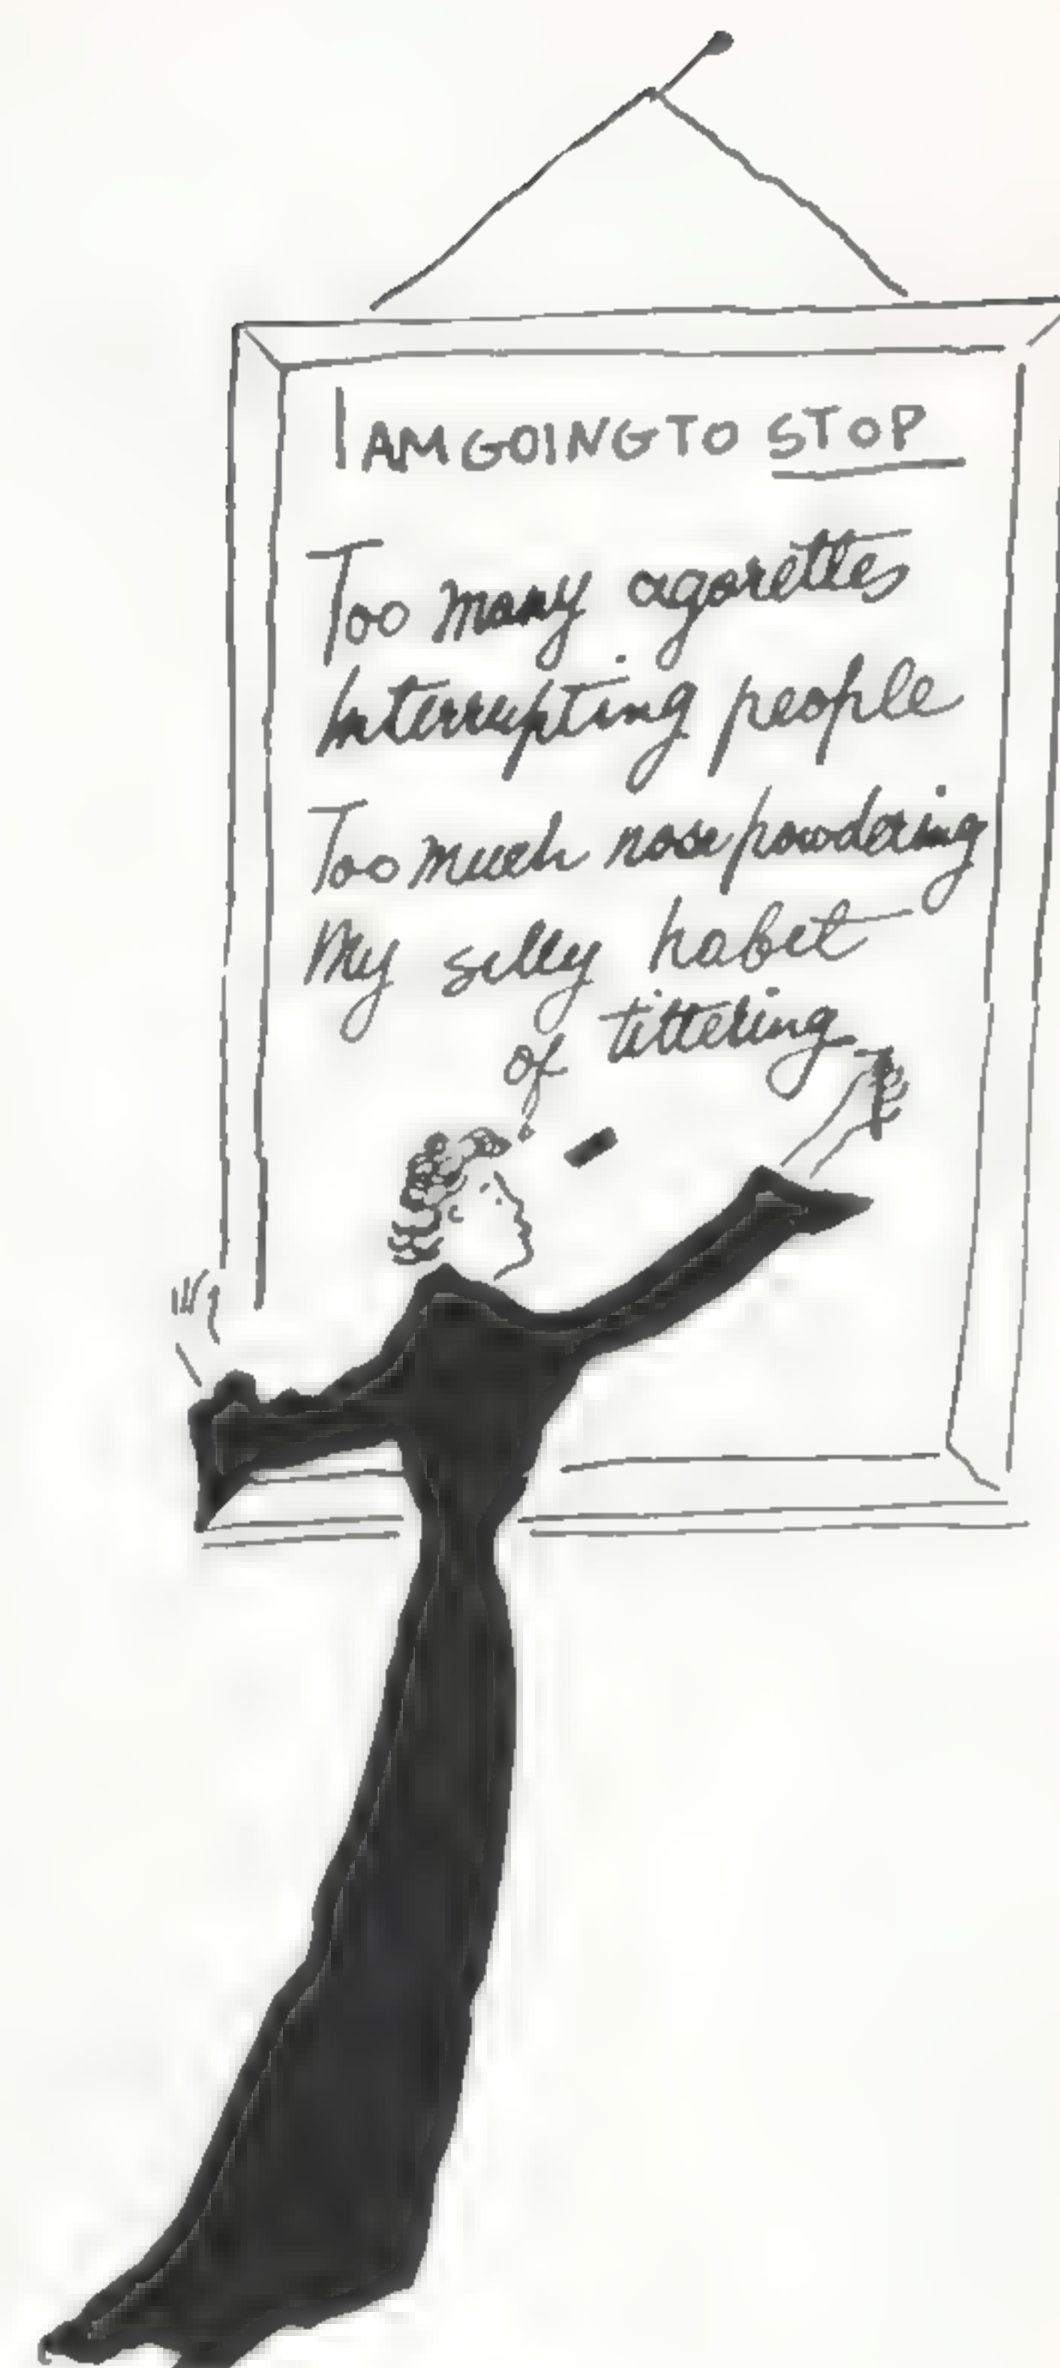 I AM GOING TO STOP
Too many cigarettes
Interrupting people
Too much nose powdering
My silly habit
of tittering